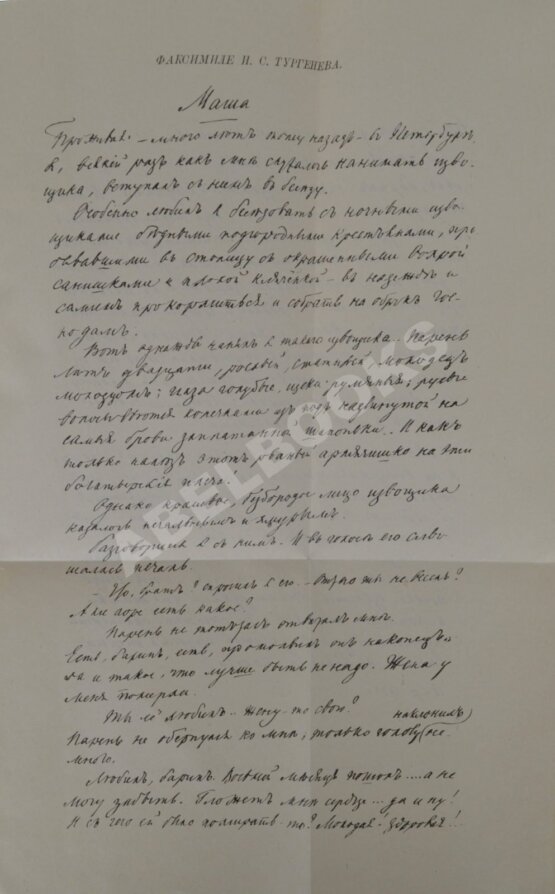 ФАКСИМИЛЕ И. С. ТУРГЕНЕВА.
Маша
Проживая – много лѣтъ тому назадъ – въ Петербургѣ
я, всякій разъ какъ мнѣ случалось нанимать изво-
щика, вступалъ съ нимъ въ бесѣду.
Особенно любилъ я бесѣдовать съ ночными изво-
щиками бѣдными подгородными крестьянами, при
бывавшими въ столицу съ окрашенными вохрой
санишками и плохой клячёнкой – въ надеждѣ и
самимъ прокормиться и собрать на оброкъ гос-
подамъ.
Вотъ однажды нанялъ я такого извощика. Парень
лѣтъ двадцати, рослый, статный, молодецъ
молодцомъ; глаза голубые, щёки румяныя; русые
волосы вьются колечками изъ подъ надвинутой на
самыя брови заплатанной шапоньки. И какъ
только налѣзъ этотъ рваный армячишко на эти
богатырскія плеча!
Однако красивое безбородое лицо извощика
казалось печальнымъ и хмурымъ.
Разговорился я съ нимъ. И въ голосѣ его слы-
шалась печаль.
– Что, братъ? спросилъ я его. – Отчего ты не веселъ?
Али горе есть какое?
Парень не тотчасъ отвѣчалъ мнѣ.
Есть, баринъ, есть, промолвилъ онъ наконецъ. –
да и такое, что лучше быть не надо. Жена у
меня померла.
Ты её любилъ – жену-то свою?
наклонилъ
Парень не обернулся ко мнѣ; только голову не-
много.
Любилъ, баринъ. Восьмый мѣсяцъ пошолъ.... а не
могу забыть. Гложетъ мнѣ сердце... да и ну!
И съ чего ей было помирать-то? Молодая! здоровая!..
ABELBOOKS